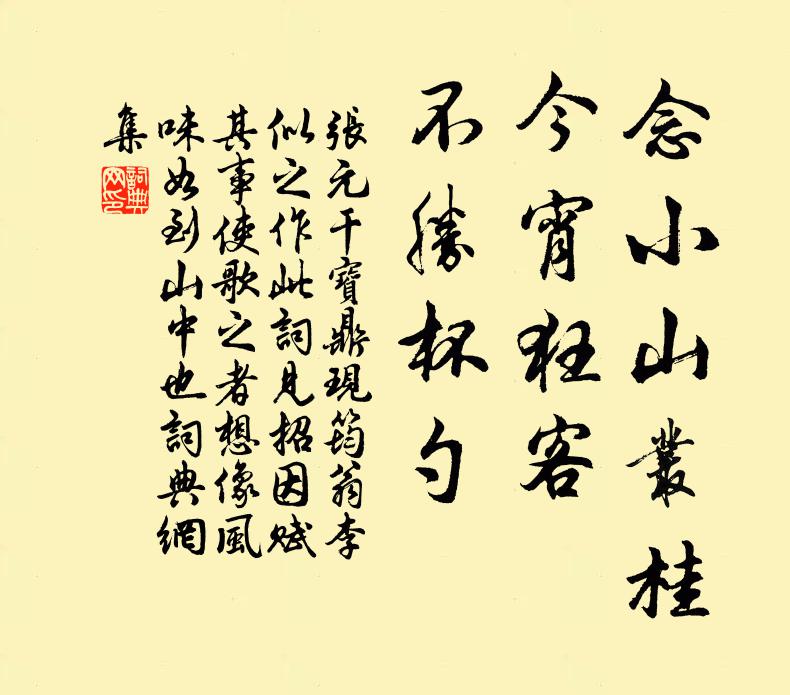 念小山叢桂
今宵狂客
不勝杯勺
張元干寶鼎現筠翁李
似之作此詞見招因賦
其事使歌之者想像風
味如到山中也詞典網
集
詞典
网印